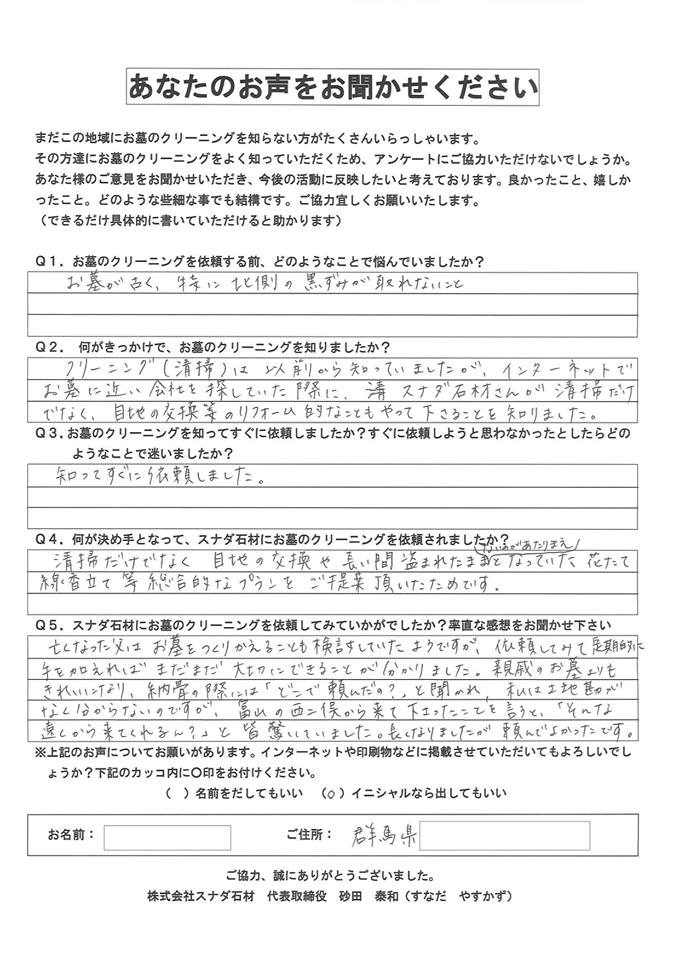 あなたのお声をお聞かせください
まだこの地域にお墓のクリーニングを知らない方がたくさんいらっしゃいます。
その方達にお墓のクリーニングをよく知っていただくため、アンケートにご協力いただけないでしょうか。
あなた様のご意見をお聞かせいただき、今後の活動に反映したいと考えております。良かったこと、嬉しか
ったこと。どのような些細な事でも結構です。ご協力宜しくお願いいたします。
（できるだけ具体的に書いていただけると助かります）
Ｑ１．お墓のクリーニングを依頼する前、どのようなことで悩んでいましたか？
お墓が古く、特に北側の黒ずみが取れないこと
Ｑ２． 何がきっかけで、お墓のクリーニングを知りましたか？
クリーニング(清掃)は以前から知っていましたが、インターネットで
お墓に近い会社を探していた際に、清 スナダ石材さんが清掃だけ
でなく、目地の交換等のリフォーム的なこともやって下さることを知りました。
Ｑ３．お墓のクリーニングを知ってすぐに依頼しましたか？すぐに依頼しようと思わなかったとしたらどの
ようなことで迷いましたか？
知ってすぐに依頼しました。
Ｑ４．何が決め手となって、スナダ石材にお墓のクリーニングを依頼されましたか？
ないのがあたりまえ
清掃だけでなく 目地の交換や長い間盗まれたままとなっていた 花たて
線香立て等総合的なプランをご提案頂いたためです。
Ｑ５．スナダ石材にお墓のクリーニングを依頼してみていかがでしたか？率直な感想をお聞かせ下さい
亡くなった父はお墓をつくりかえることも検討していたようですが、依頼してみて定期的に
手を加えればまだまだ大切にできることが分かりました。親戚のお墓よりも
きれいになり、納骨の際には「どこで頼んだの？」と聞かれ、私は土地勘が
なく分からないのですが、富山の西二俣から来て下さったことを言うと、「そんな
遠くから来てくれるん？」と皆驚いていました。長くなりましたが頼んでよかったです。
※上記のお声についてお願いがあります。インターネットや印刷物などに掲載させていただいてもよろしいでし
ょうか？下記のカッコ内に〇印をお付けください。
（ ）名前をだしてもいい （○）イニシャルなら出してもいい
お名前： ご住所： 群馬県
ご協力、誠にありがとうございました。
株式会社スナダ石材 代表取締役 砂田 泰和（すなだ やすかず）